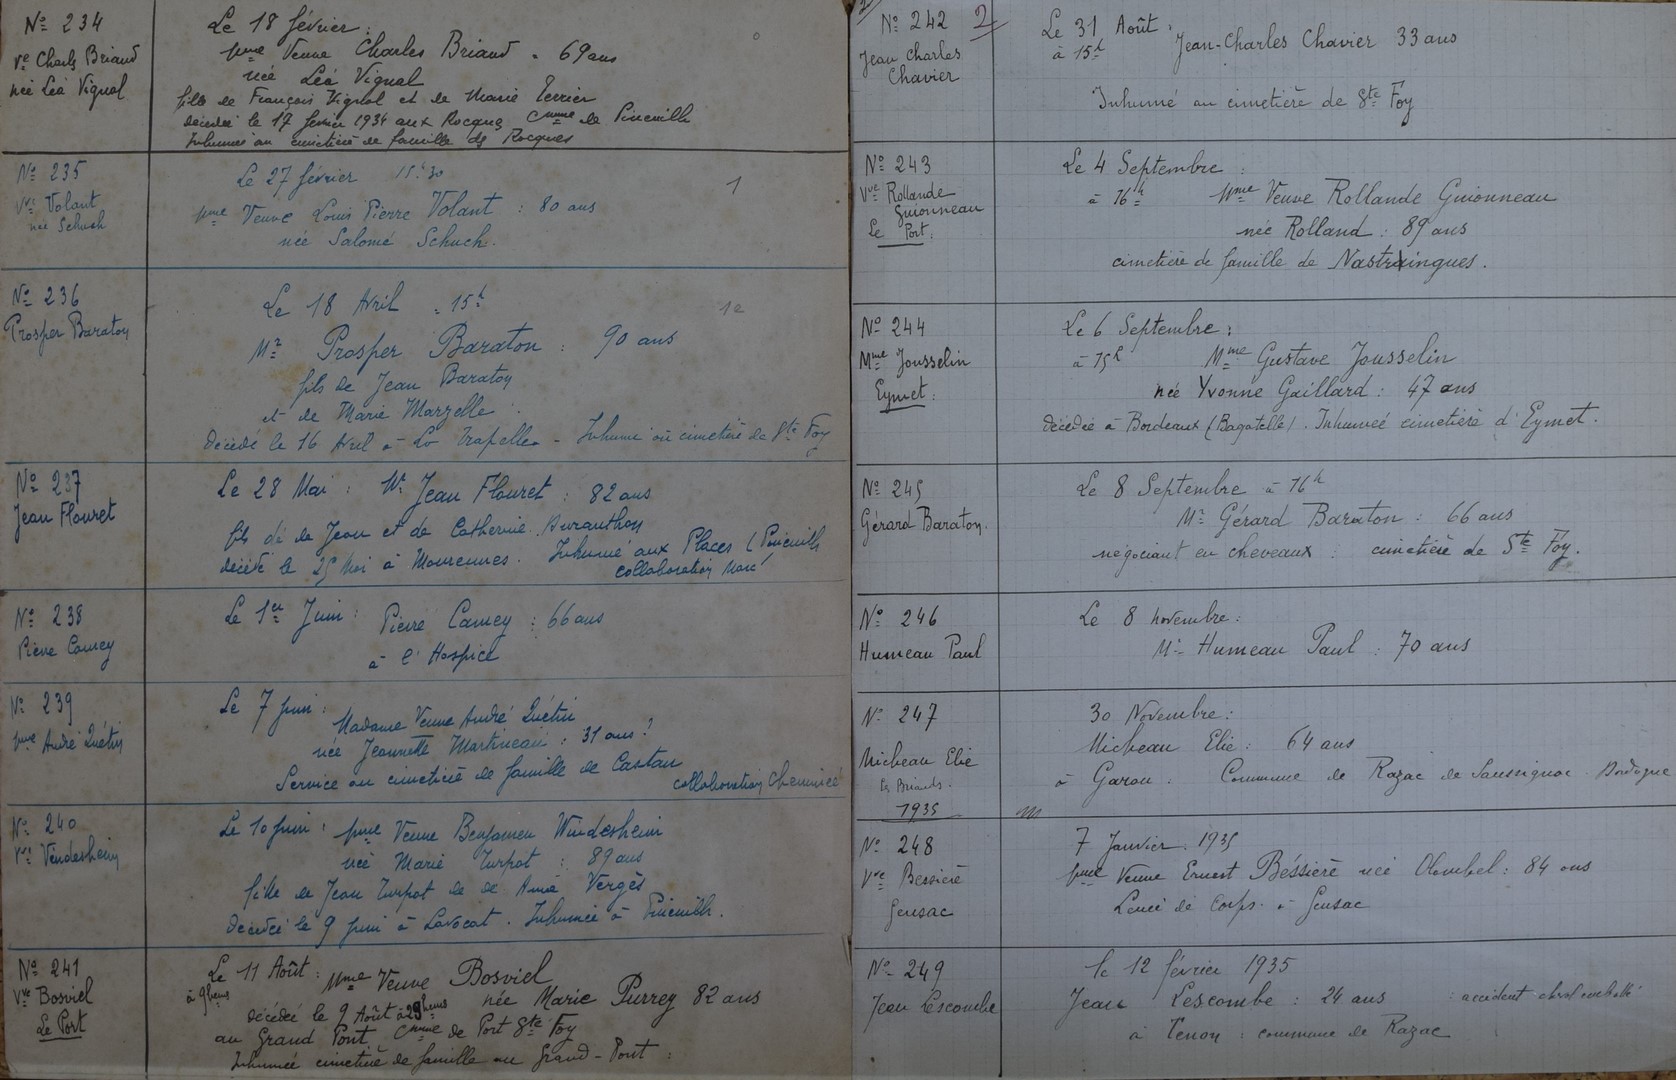 Nº 234
Vve Charles Briand
née Léa Vignal
Le 18 février :
Mme Veuve Charles Briand - 69 ans
née Léa Vignal
fille de François Vignal et de Marie Terrier
décédée le 17 février 1934 aux Rocques Cmme de Pineuilh
Inhumée au cimetière de famille des Rocques
Nº 235
Vve Volant
née Schuch
Le 27 février 15h30
1
Mme Veuve Louis Pierre Volant : 80 ans
née Salomé Schuch.
Nº 236
Prosper Baraton
Le 18 Avril - 15h
Mr Prosper Baraton : 90 ans
fils de Jean Baraton
et de Marie Marzelle
décédé le 16 Avril à La - Inhumé au cimetière de Ste Foy
Nº 237
Jean Flouret
Le 28 Mai : Mr Jean Flouret : 82 ans
fils de Jean et de Catherine
décédé le 25 Mai à . Inhumé aux Places (Pineuilh
collaboration Marc
Nº 238
Pierre Camey
Le 1er Juin : Pierre Camey : 66 ans
à l'Hospice
Nº 239
Mme André Quétin
Le 7 juin :
Madame Veuve André Quétin
née Jeannette Martineau : 31 ans ?
Service au cimetière de famille de Castan
collaboration Cheminée
Nº 240
Vve Vindesheim
Le 10 juin : Mme Veuve Benjamin Windesheim
née Marie Turpot : 89 ans
fille de Jean Turpot de de Vergès
décédée le 9 juin à Lavocat. Inhumée à Pineuilh.
Nº 241
Vve Bosviel
Le Port
Le 11 Août : Mme Veuve Bosviel
à 9 heures
née Marie Purrey 82 ans
décédée le 9 Août à 29 heures
au Grand Pont Cmme de Port Ste Foy
Inhumée cimetière de famille au Grand-Pont :
2
Nº 242
Jean Charles
Chavier
Le 31 Août
à 15h
Jean-Charles Chavier 33 ans
Inhumé au cimetière de Ste Foy
Nº 243
Vve Rollande
Guionneau
Le Port.
Le 4 Septembre :
à 16h Mme Veuve Rollande Guionneau
née Rolland : 89 ans
cimetière de famille de Nastringues.
Nº 244
Mme Jousselin
Eymet.
Le 6 Septembre :
à 15h Mme Gustave Jousselin
née Yvonne Gaillard : 47 ans
décédée à Bordeaux (Bagatelle). Inhumée cimetière d'Eymet.
Nº 245
Gérard Baraton.
Le 8 Septembre à 16h
Mr Gérard Baraton : 66 ans
négociant en cheveaux : cimetière de Ste Foy.
Nº 246
Humeau Paul
Le 8 novembre :
Mr Humeau Paul : 70 ans
Nº 247
Micheau Elie
Les Briands.
30 Novembre :
Micheau Elie : 64 ans
à Garou. Commune de Razac de Saussignac. Dordogne
1935
Nº 248
Vve Bessière
Gensac
7 Janvier. 1935
Mme Veuve Ernest Béssière née Olombel : 84 ans
Levée de Corps. à Gensac
Nº 249
Jean Lescombe
le 12 février 1935
Jean Lescombe : 24 ans : accident
à Tenon : commune de Razac